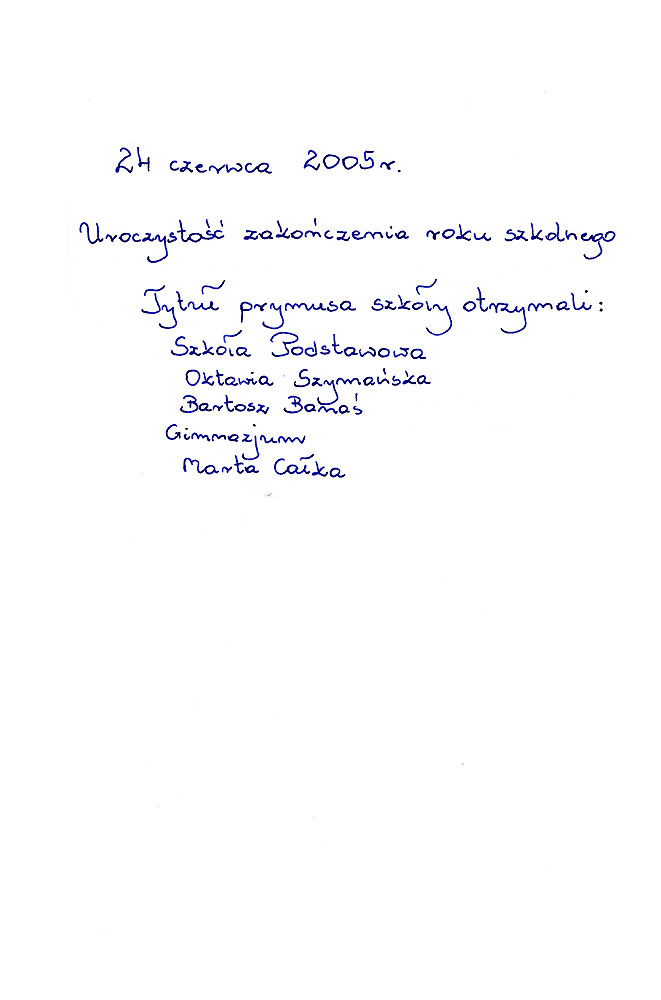 24 czerwca 2005 r.
Uroczystość zakończenia roku szkolnego
Tytuł prymusa szkoły otrzymali:
Szkoła Podstawowa
Oktawia Szymańska
Bartosz Banaś
Gimnazjum
Marta Całka